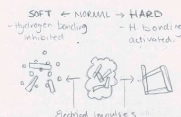 SOFT ← NORMAL → HARD
- Hydrogen bonding inhibited
- H bonding activated.
Electrical impulses